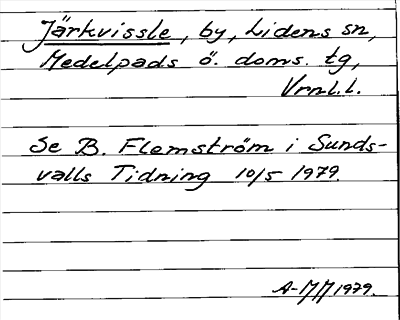 Järkvissle, by, Lidens sn,
Medelpads ö. doms. tg,
Vrnl.l.
Se B. Flemström i Sunds-
valls Tidning 10/5 1979.
A-MM 1979.